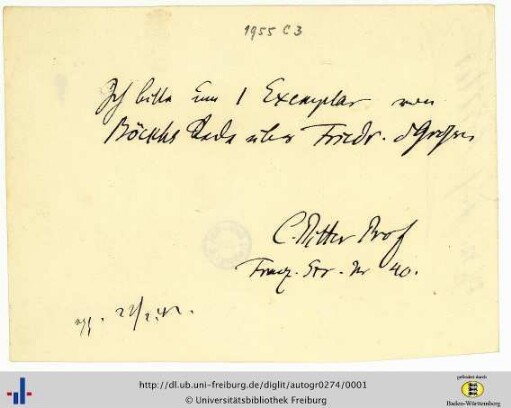 1955 C 3
Ich bitte um 1 Exemplar von
Böckhs Rede über Friedr. d Großen
C. Ritter Prof
Franz. Str. Nr 40.
22/2.42.
http://dl.ub.uni-freiburg.de/diglit/autogr0274/0001
© Universitätsbibliothek Freiburg
gefördert durch
Baden-Württemberg